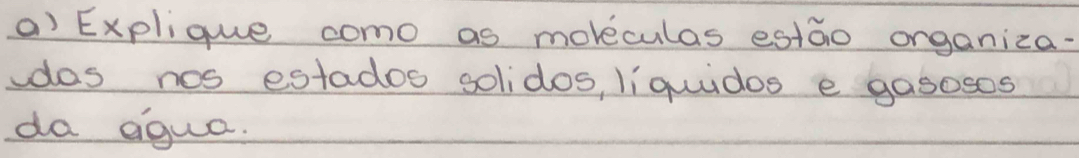 a) Explique como as moléculas estão organiza-
das nos estados solidos, líquidos e gasosos
da água.